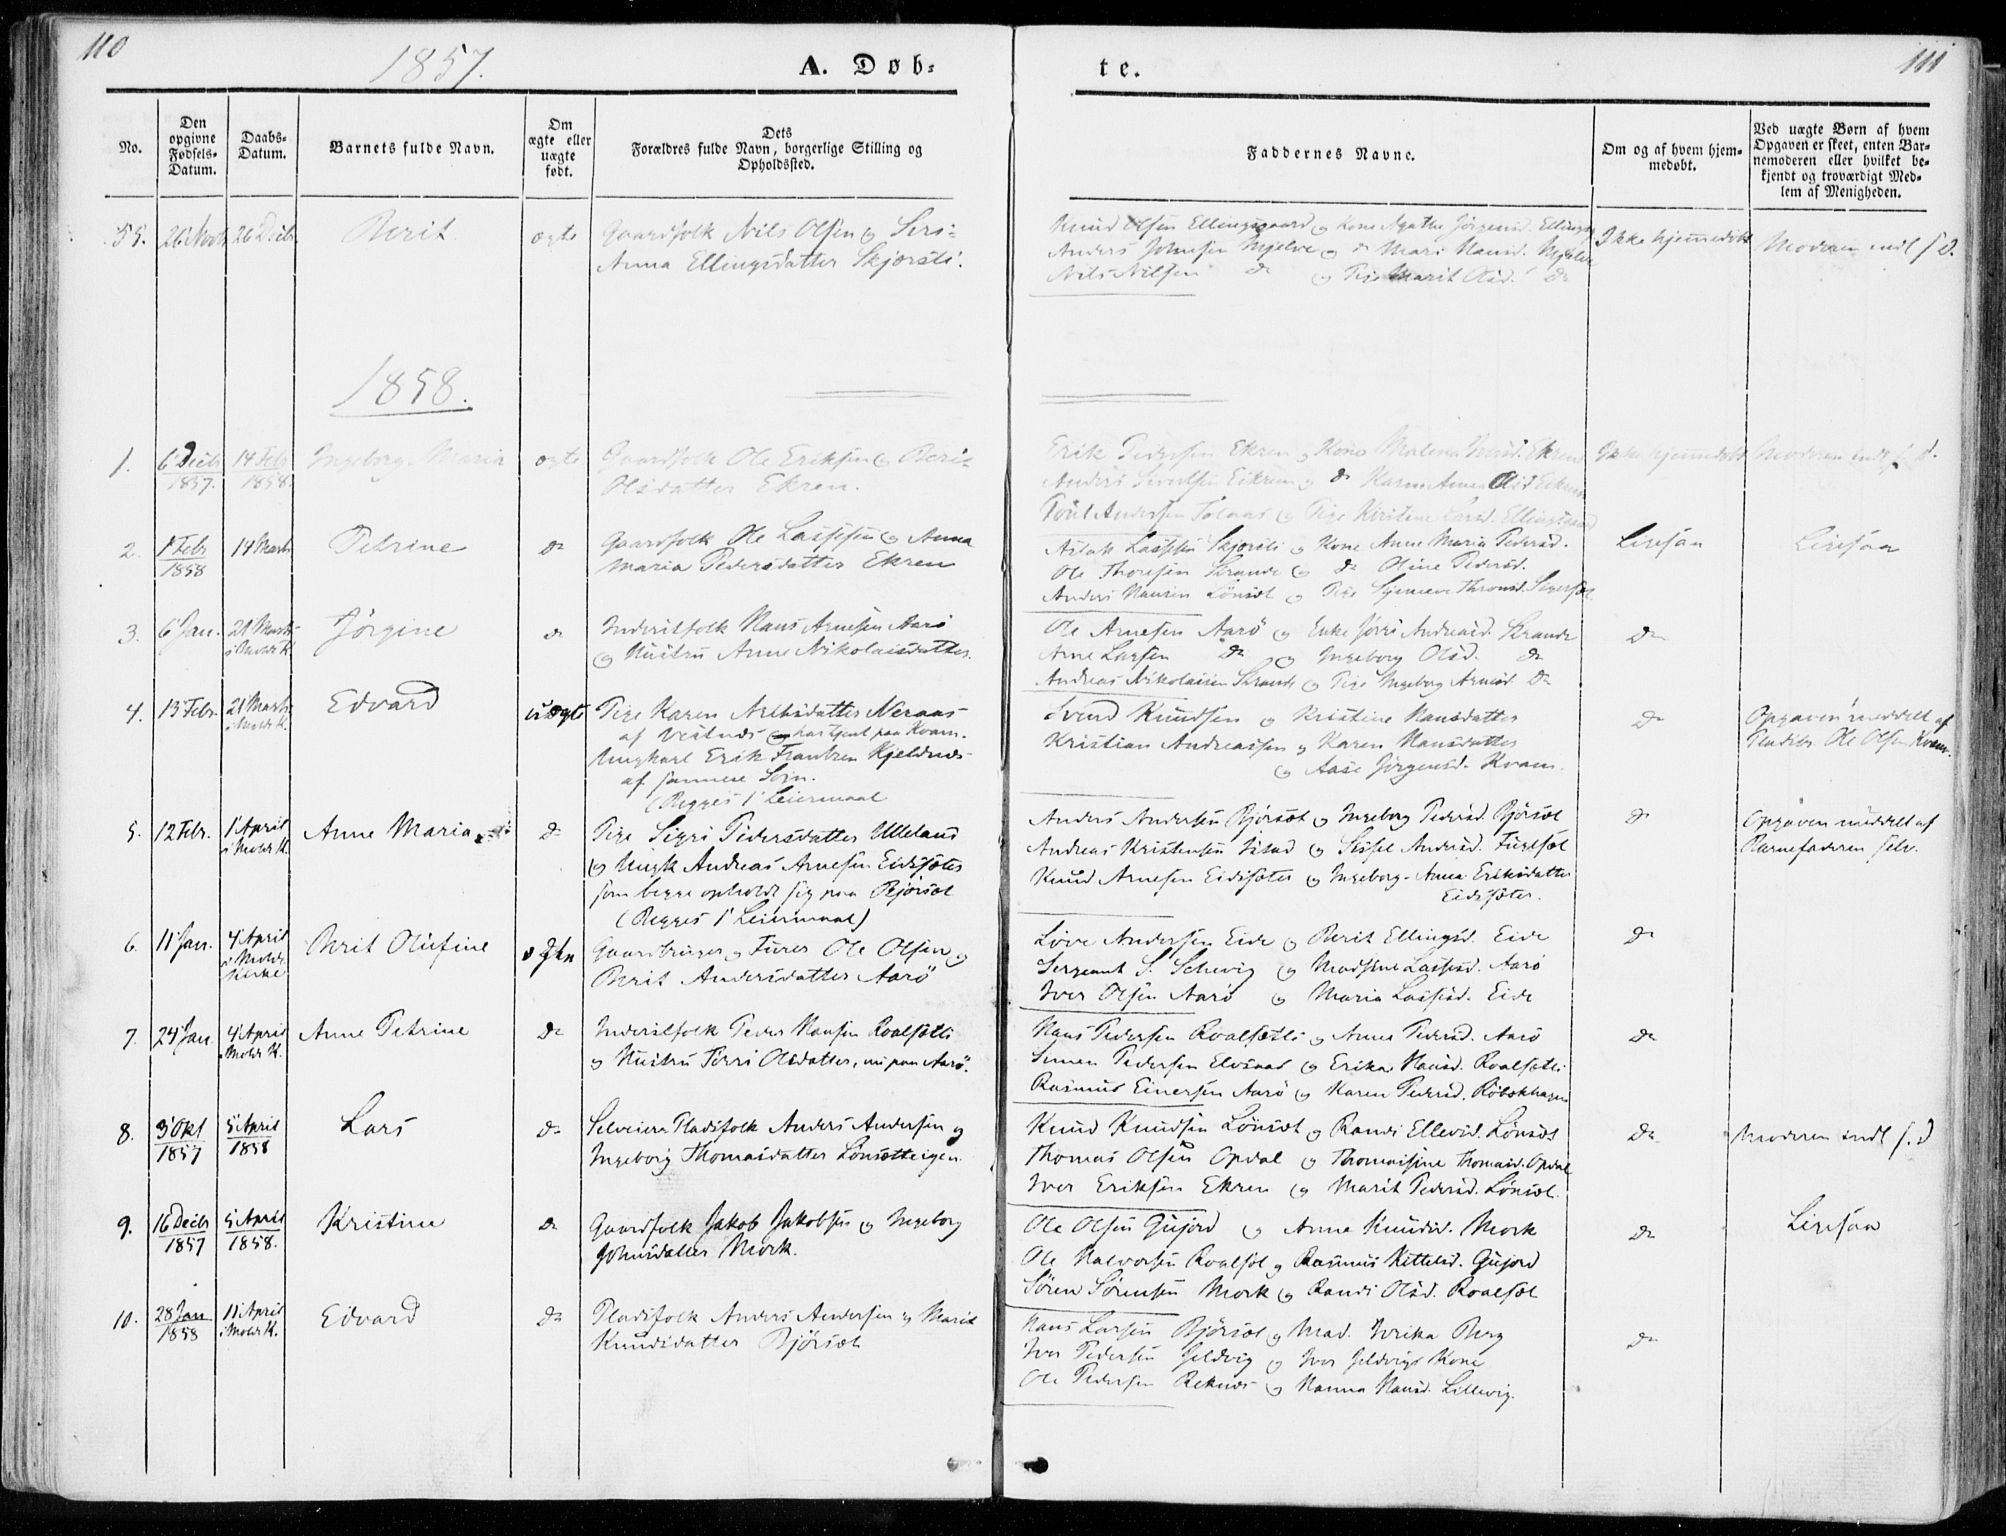 110
1857.
A. Døb-
te.
111
No.
Den opgivne Fødsels-Datum.
Daabs-Datum.
Barnets fulde Navn.
Om ægte eller uægte født.
Dets
Forældres fulde Navn, borgerlige Stilling og
Opholdssted.
Faddernes Navne.
Om og af hvem hjem-
medøbt.
Ved uægte Børn af hvem
Opgaven er skeet, enten Bar-
nemoderen eller hvilket be-
kjendt og troværdigt Med-
lem af Menigheden.
55. 26 Novb 26 Decb Berit ægte Gaardfolk Nils Olsen og Seri-
Anna Ellingsdatter Skjorsli.
Knud Olsen Ellingsgaard og Kone Agathe Jørgensd. Ellingsg
Anders Johnsen Mjelve og do Mari Hansd. Mjelve
Nils Nilsen do og Pige Marit Olsd. do
Ikke hjemmedøbt
Moderen indl f D.
1858.
1. 6 Decb 1857. 14 Feb 1858 Ingeborg Maria ægte Gaardfolk Ole Eriksen og Beri-
Olsdatter Ekren.
Erik Pedersen Ekren og Kone Malena Ekren
Anders Sivertsen Eikrem og do Karen Anna Olsd
Poul Andersen Tolaas og Pige Kirstine Larsd. Ellingsgaard
Ikke hjemmedøbt
Moderen indl f. D.
2. 1 Febr 1858 14 Marts Petrine do Gaardfolk Ole Lassesen og Anna
Maria Pedersdatter Ekren
Aslak Lassesen Skjorsli og Kone Anne Maria Pedersd.
Ole Thoresen Strande og do Oline Pedersd.
Anders Hansen Lønsæt og Pige Thronsd.
Ligesaa
Ligesaa
3. 6 Jan. 21 Marts i Molde K. Jørgine do Inderstfolk Hans Arnesen Aarø
og Hustru Anne Nikolaisdatter.
Ole Arnesen Aarø og Enke Andreasd. Strande
Arne Larsen do og Ingeborg Olsd. do
Andreas Nikolaisen Strande og Pige Ingeborg Arnesd do
do
4. 13 Febr. 21 Marts i Molde K. Edvard uægte Pige Karen Neraas
af Vestnæs har tjent paa Kvam.
Ungkarl Erik Frantzen Kjeldnæs
af samme Sogn.
(Begges 1' Leiermaal
Svend Knudsen og Kristine Hansdatter
Kristian Andreassen og Karen Hansdatter
og Aase Jørgensd. Kvam
do
Opgaven meddelt af
Pladsbr. Ole Olsen Kvam.
5. 12 Febr. 1 April i Molde K. Anne Maria do Pige Sigri Pedersdatter Ulleland
og Ungk Andreas Arnesen Eidssæter
som begge opholde sig paa Bjørsæt
(Begges 1' Leiermaal)
Anders Andersen Bjørsæt og Ingeborg Pedersd. Bjørsæt
Andreas Kristensen Istad og Sissel Andersd. Fuglset
Knud Arnesen Eidssæter og Ingeborg-Anna Eriksdatter
Eidssæter.
do
Opgaven meddelt af
Barnefaderen selv.
6. 11 Jan. 4 April i Molde Kirke Berit Olufine ægte Gaardbruger og Furer Ole Olsen og
Berit Andersdatter Aarø
Love Andersen Eide og Berit Ellingsd. Eide
Sergeant S. Schevig og Madsine Lassesd. Aarø
Iver Olsen Aarø og Maria Lassesd. Eide
do
7. 24 Jan 4 April i Molde K. Anne Petrine do Inderstfolk Peder Hansen Roalsætli
og Hustru Olsdatter, nu paa Aarø.
Hans Pedersen Roalsætli og Anna Pedersd. Aarø
Simen Pedersen og Erika Hansd. Roalsætli
Rasmus Einersen Aarø og Karen Pedersd. Røbækhagen
do
8. 3 Okt 1857 5 April 1858 Lars do Selveiere Pladsfolk Anders Andersen og
Ingeborg Thomasdatter Lønsetteigen.
Knud Knudsen Lønsæt og Randi Lønsæt
Thomas Olsen Opdal og Thomasine Thomasd. Opdal
Iver Eriksen Ekren og Marit Pedersd. Lønsæt.
do
Moderen indl f. D
9. 16 Decb 1857 5 April 1858. Kristine do Gaardfolk Jakob Jakobsen og Ingeborg
Johnsdatter Mork.
Ole Olsen Gujord og Anne Knudsd. Mork
Ole Halvorsen Roalset og Rasmus Kittelsd. Gujord
Søren Sørensen Mork og Randi Olsd. Roalset
do
Ligesaa
10. 28 Jan 1858 11 April i Molde K. Edvard do Pladsfolk Anders Andersen og Marit
Knudsdatter Bjørset
Hans Larsen Bjørset og Mad. Berg
Iver Pedersen Geldvig og Iver Geldvigs Kone
Ole Pedersen Reknæs og Hanna Hansd. Lillevig.
do